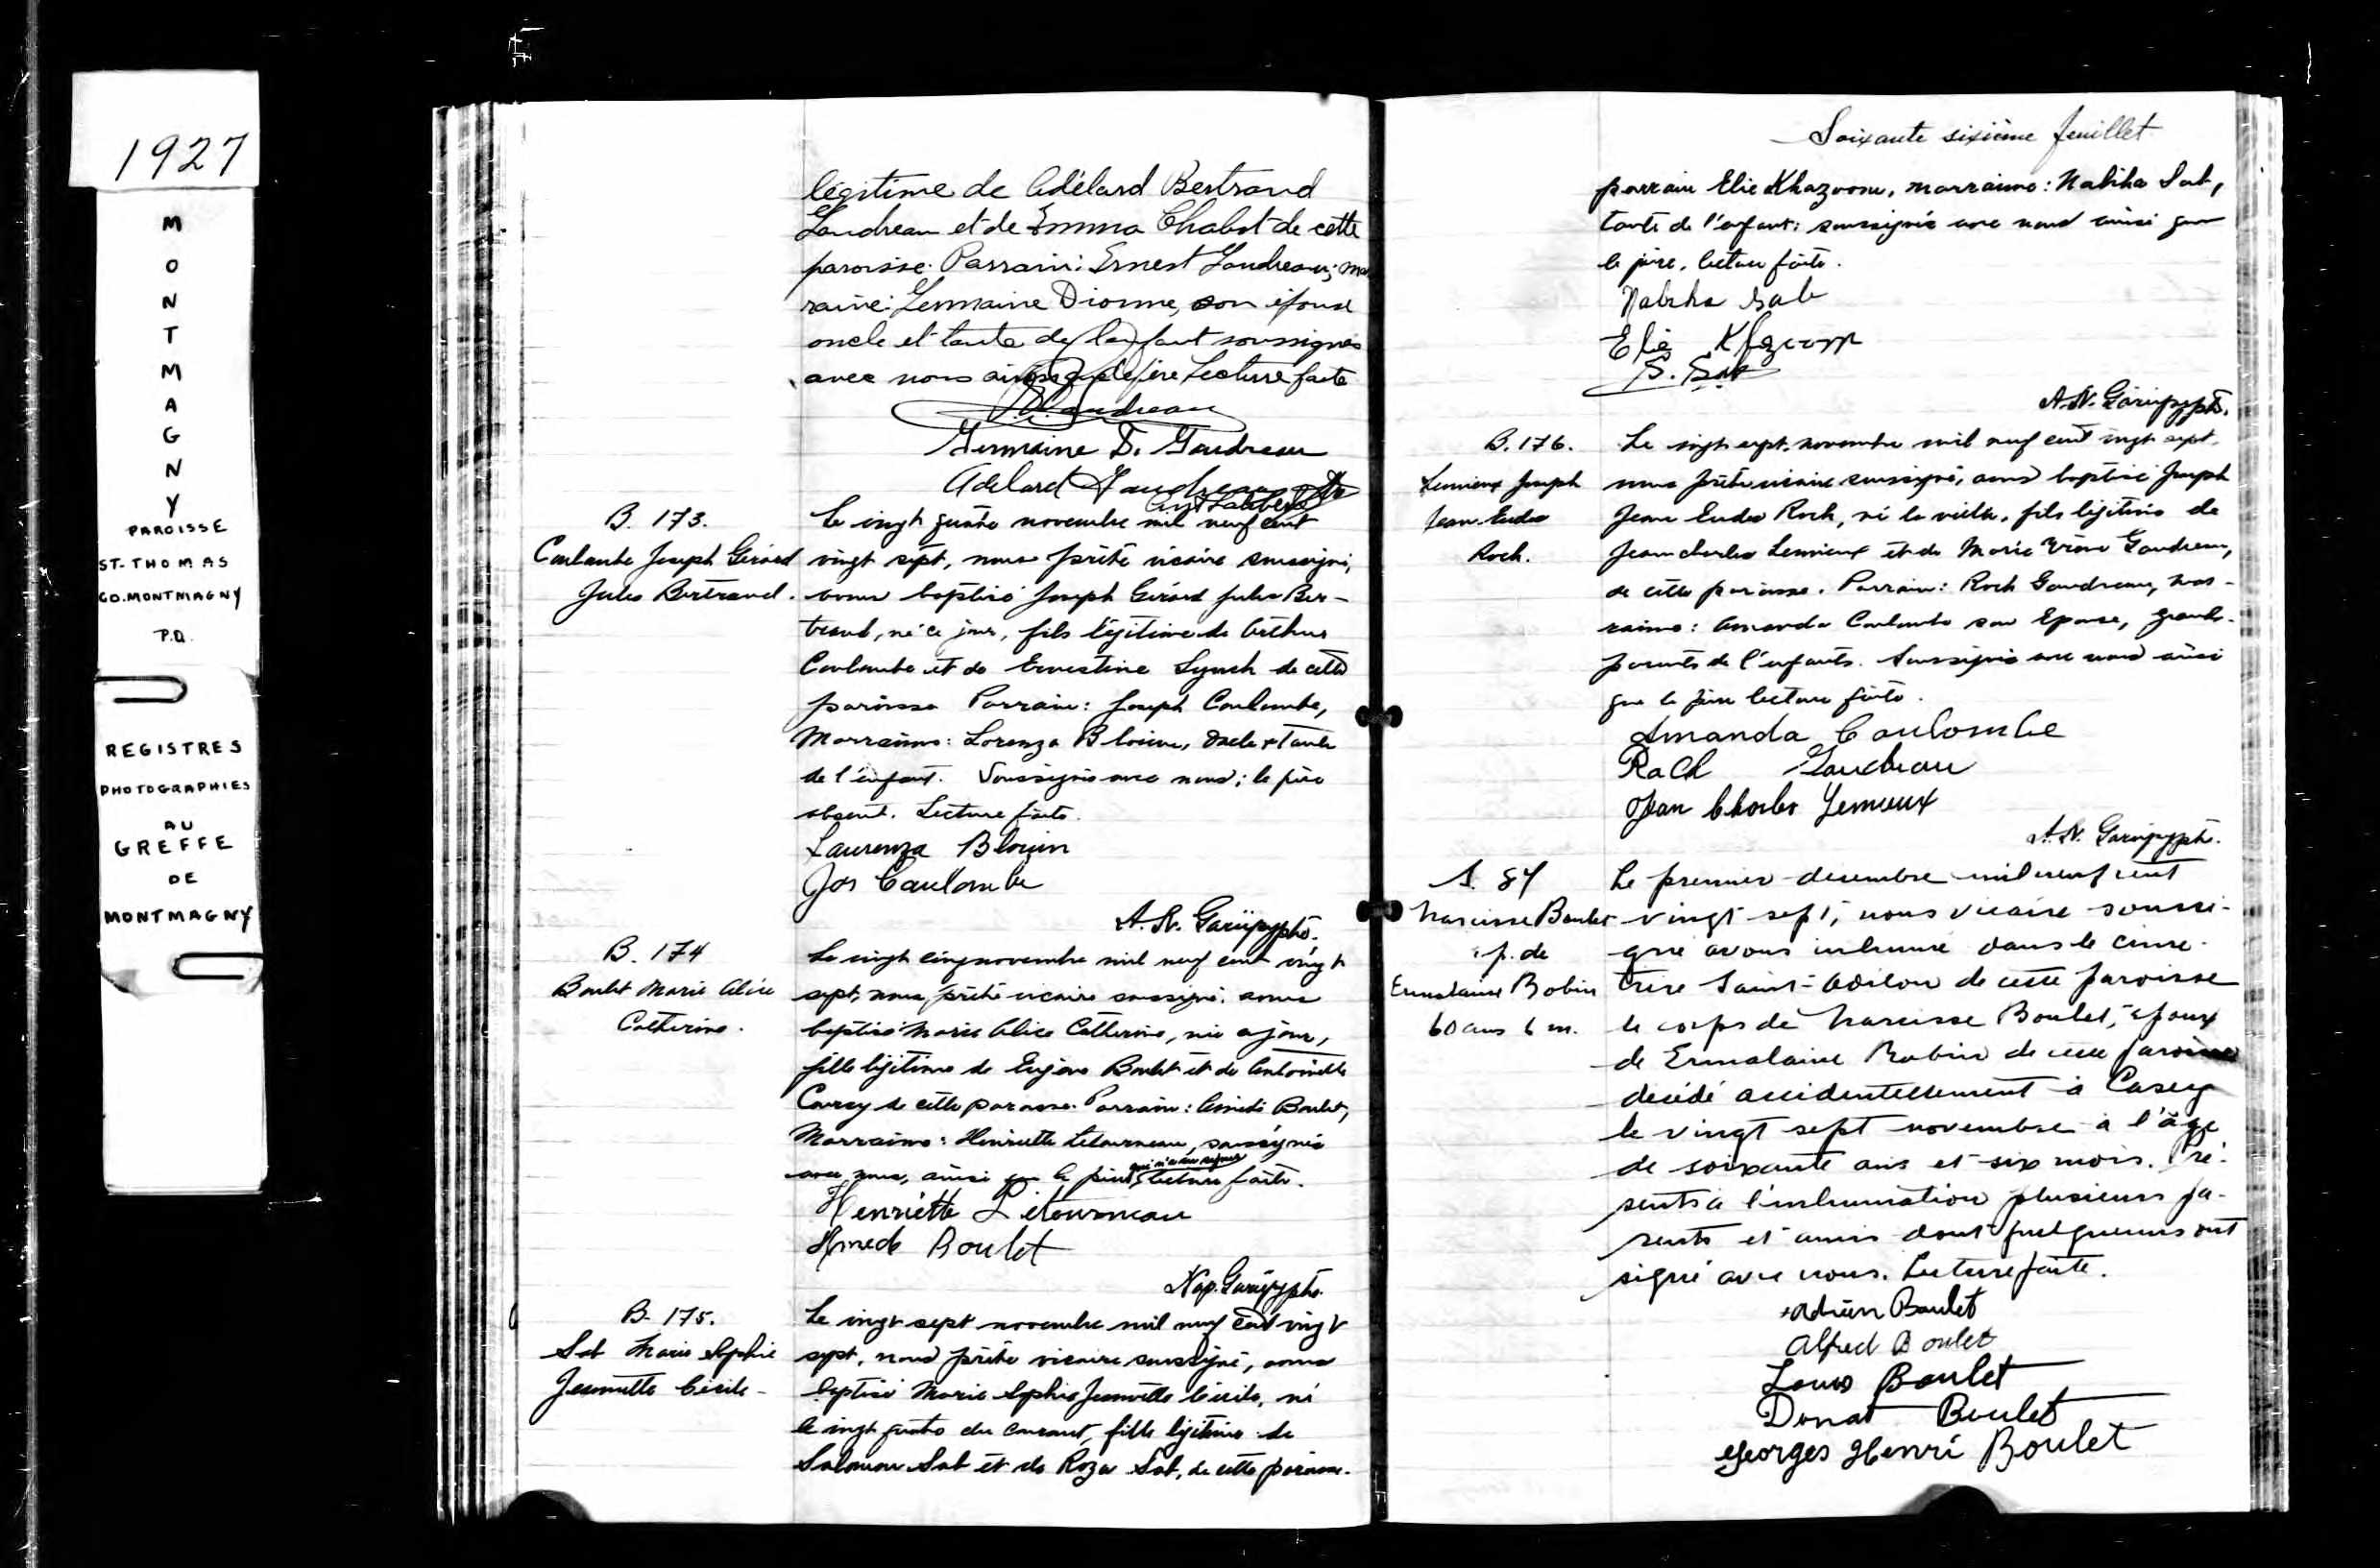 1927
MONTMAGNY
PAROISSE
ST-THOMAS
CO. MONTMAGNY
P.Q.
REGISTRES
PHOTOGRAPHIES
AU
GREFFE
DE
MONTMAGNY
légitime de Adélard Bertrand
Gaudreau et de Emma Chabot de cette
paroisse. Parrain: Ernest Gaudreau; mar
raine: Germaine Dionne, son épouse
oncle et tante de l'enfant soussignés
avec nous ainsi que le père Lecture faite
Gaudreau
Germaine D. Gaudreau
Adelard Gaudreau
B. 173.
Coulombe Joseph Gérard
Jules Bertrand.
Le vingt quatre novembre mil neuf cent
vingt sept, nous prêtre vicaire soussigné,
avons baptisé Joseph Gérard Jules Ber-
trand, né ce jour, fils légitime de Arthur
Coulombe et de Ernestine Lynch de cette
paroisse Parrain: Joseph Coulombe,
Marraine: Lorenza Blouin, oncle & tante
de l'enfant. Soussignés avec nous; le père
absent. Lecture faite.
Laurenza Blouin
Jos Coulombe
A. N. Gariépy ptre.
B. 174
Boulet Marie Alice
Catherine.
Le vingt cinq novembre mil neuf cent vingt
sept, nous prêtre vicaire soussigné, avons
baptisé Marie Alice Catherine, née ce jour,
fille légitime de Eugène Boulet et de Antoinette
de cette paroisse. Parrain: Amédé Boulet,
Marraine: Henriette Letourneau, soussignés
avec nous, ainsi que le père qui n'a su signer lecture faite.
Henriette Letourneau
Amedé Boulet
Nap. Gariépy ptre.
B. 175.
Sab Marie Sophie
Jeannette Cécile-
Le vingt sept novembre mil neuf cent vingt
sept, nous prêtre vicaire soussigné, avons
baptisé Marie Sophie Jeannette Cécile, né
le vingt quatre du courant, fille légitime de
Salomon Sab et de Roza Sab, de cette paroisse.
Soixante sixième feuillet
parrain Elie Khazoom, marraine: Nabiha Sab,
tante de l'enfant: soussignés avec nous ainsi que
le père. lecture faite.
Nabiha Sab
Elie
S. Sab
A. N. Gariépy ptre.
B. 176.
Lemieux Joseph
Jean Eudes
Roch.
Le vingt sept novembre mil neuf cent vingt sept,
nous prêtre vicaire soussigné, avons baptisé Joseph
Jean Eudes Roch, né la veille, fils légitime de
Jean charles Lemieux et de Marie Gaudreau,
de cette paroisse. Parrain: Roch Gaudreau, mar-
raine: Amanda Coulombe son Epouse, grands-
parents de l'enfants. Soussignés avec nous ainsi
que le père lecture faite.
Amanda Coulombe
Roch Gaudreau
Jean Charles Lemieux
A. N. Gariépy ptre.
S. 84
Narcisse Boulet
ép. de
Ermalaine Robin
60 ans 6 m.
Le premier decembre mil neuf cent
vingt sept, nous vicaire soussi-
gné avons inhumé dans le cime-
tière Saint-Odilon de cette paroisse
le corps de Narcisse Boulet, époux
de Ermalaine Robin de cette paroisse
décédé accidentellement à Casey
le vingt sept novembre à l'âge
de soixante ans et six mois. Pré-
sents à l'inhumation plusieurs pa-
rents et amis dont quelques uns ont
signé avec nous. Lecture faite.
Adrien Boulet
Alfred Boulet
Louis Boulet
Donat Boulet
Georges Henri Boulet